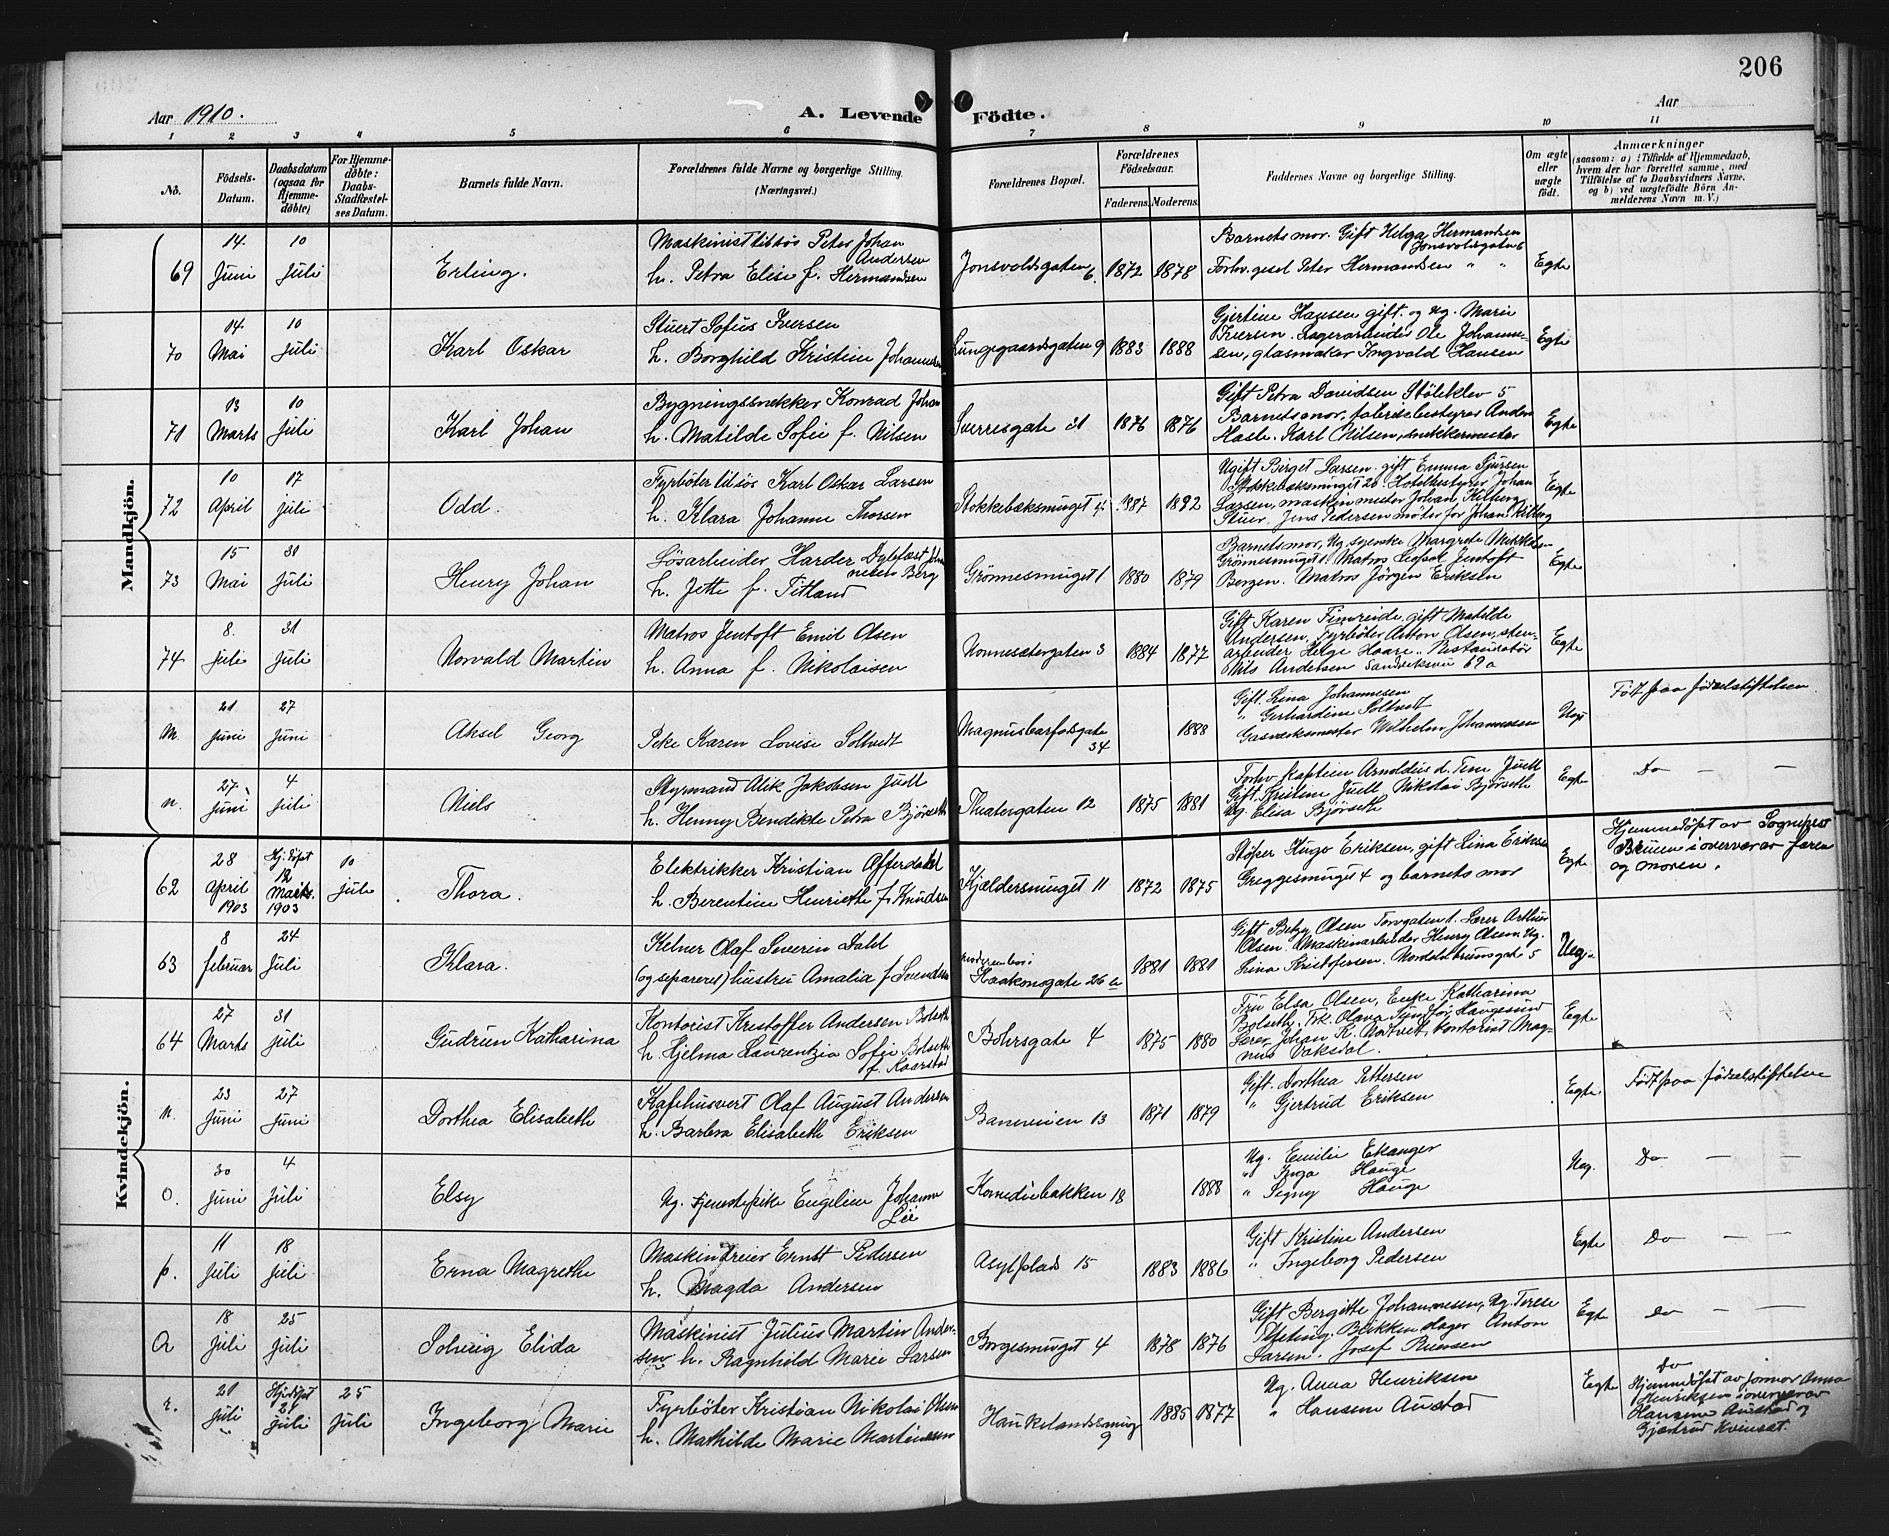 206
Aar 1910.
A. Levende Födte.
Aar
1 2 3 4 5 6 7 8 9 10 11
Nô.
Födsels-Datum.
Daabsdatum (ogsaa for Hjemme-döbte)
For Hjemme-döbte: Daabs-Stadfæstel-ses Datum.
Barnets fulde Navn.
Forældrenes fulde Navne og borgerlige Stilling. (Næringsvei.)
Forældrenes Bopæl.
Forældrenes Födselsaar.
Faderens. Moderens.
Faddernes Navne og borgerlige Stilling.
Om ægte eller uægte födt.
Anmærkninger
(saasom: a) i Tilfælde af Hjemmedaab,
hvem der har forrettet samme, med
Tilföielse af to Daabsvidners Navne,
og b) ved uægtefödte Börn An-
melderens Navn m. V.)
Mandkjön.
69
14 Juni
10 Juli
Erling.
Maskinist tilsös Peter Johan Andersen
h. Petra Elise f. Hermandsen
Jonsvoldsgaten 6.
1872 1878
Barnets mor. Gift Helga Hermandsen Jonsvoldsgaten 6
Forhv. gesel Peter Hermandsen " "
Egte
70
14. Mai
10 Juli
Karl Oskar
Stuert Sofus Iversen
h. Borghild Kristine Johannesen
Lungegaardsgaten 9
1883 1888
Gjertine Hansen gift. og Ug. Marie
Iversen. Lagerarbeider Ole Johanne-
sen, glasmaker Ingvald Hansen
Egte
71
13 Marts
10 Juli
Karl Johan
Bygningssnekker Konrad Johan
h. Matilde Sofie f. Nilsen
Sverresgate 31
1876 1876
Gift Petra Davidsen Stöleklev 5
Barnets mor, fabrikbestyrer Anders
Hasle. Karl Nilsen, snekkermester
Egte
72
10 April
17 Juli
Odd.
Fyrböter tilsös Karl Oskar Larsen
h. Klara Johanne Thorsen
Stokkebæksmuget 4.
1887 1892
Ugift Birget Larsen. gift Emma Sjursen
Stokkebæksmuget 20 Hotelbestyrer Johan
Larsen, maskinmester Johan Kilberg
Stuer. Jens Pedersen möter for Johan Kilberg
Egte
73
15 Mai
31 Juli
Henry Johan
Lösarbeider Harder Dybfest Johannesen Berg
h. Jette f. Titland
Grönnesmuget 1
1880 1879
Barnets mor, Ug. syerske Margrete Mikkelsen
Grönnesmuget 1. Matros Leopol Jentoft
Bergen. Matros Jörgen Eriksen
Egte
74
8. Juli
31 Juli
Norvald Martin
Matros Jentoft Emil Olsen
h. Anna f. Nikolaisen
Nonnesætergaten 3
1884 1877
Gift Karen Fimreide, gift Matilde
Andersen, Fyrböter Anton Olsen, sten-
arbeider Helge Haare. Restauratör
Nils Andersen Sandviksvei 69a
Egte
m.
21 Juni
27 Juni
Aksel Georg
Pike Karen Lovise Soltvedt
Magnusbarfotsgate 34
1888
Gift. Lina Johannesen
" Gerhardine Soltvedt
Gasverksmester Wilhelm Johannessen
Uegt
Födt paa Födselstiftelsen
n.
27 Juni
4 Juli
Niels
Styrmand Alik Jakobsen Juell
h. Henny Bendikte Petra Björseth
Theatergaten 12
1875 1881
Forhv Kaptein Arnoldus d. Tene Juell
Gift Kristine Juell, Nikolai Björseth
Ug. Elisa Björseth
Egte
Do — —
Kvindekjön.
62
28 April 1903
Hj.döpt 12 Marts. 1903
10 Juli
Thora.
Elektrikker Kristian Offerdahl
h. Berentine Henriette f. Knudsen
Kjældersmuget 11
1872 1875
Stöper Hugo Eriksen, gift Lina Eriksen
Greggesmuget 4 og barnets mor
Egte
Hjemmedöpt av Sogneprest
Bruun i overvær av faren
og moren.
63
8 februar
24 Juli
Klara.
Kelner Olaf Severin Dahl
(og separeret) hustru Amalia f. Svendsen
moderen bor:
Haakonsgate 26 a
1881 1881
Gift Betzy Olsen Torvgaten 1. Lærer Arthur
Olsen. Maskinarbeider Henry Olsen. Ug.
Lina Kristofersen. Nordalbrunsgate 5
Ueg.
64
27 Marts
31 Juli
Gudrun Katharina
Kontorist Kristoffer Andersen Bolseth
h. Hjelma Laurentzia Sofie Bolseth f. Kaarstad
Bohrsgate 4
1875 1880
Fru Elsa Olsen, Enke Katharina
Bolseth. Frk. Olava Tundför, Haugesund
Lærer Johan K. Nortveit, kontorist Mag-
nus Vaksdal.
Egte
n.
23 Juni
27 Juni
Dorthea Elisabeth
Kafehusvert Olaf August Andersen
h. Barbra Elisabeth Eriksen
Baneveien 13
1871 1879
Gift. Dorthea Pettersen
" Gjertrud Eriksen
Egte
Födt paa födselstiftelse
o.
30 Juni
4 Juli
Elsy
Ug. Tjenestepike Engeline Johanne Lie
Komediebakken 18
1888
Ug. Emilie Ekanger
" Inga Hauge
" Signy Hauge
Ueg.
Do — —
p.
11 Juli
18 Juli
Erna Magrethe
Maskindreier Ernst Pedersen
h. Magda Andersen
Asylplads 15
1883 1886
Gift Kristine Andersen
" Ingeborg Pedersen
Egte
Do — —
Q
18 Juli
25 Juli
Solveig Elida
Maskinist Julius Martin Ander-
sen h. Ragnhild Marie Larsen
Borgesmuget 4
1878 1876
Gift Bergitte Johannesen, Ug. Terese
Blikkenslager Anton
Larsen. Josef
Egte
do — —
r.
21 Juli
Hj.döpt 21 Juli
25 Juli
Ingeborg Marie
Fyrböter Kristian Nikolai Olsen
h. Mathilde Marie Martinussen
Haukelandssmug 9
1885 1877
Ug. Anna Henriksen
" Hansine Austad
Egte
Do
Hjemmedöpt av jormor Anna
Henriksen i overvær av
Hansine Austad og
Gjertrud Kvinsat.